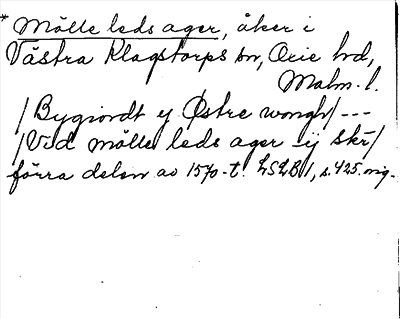 * Mölle leds ager, åker i
Västra Klagstorps sn, Oxie hd,
Malm. l.
/Bygiordt ij Østre wongh/ ---
/Ved mölle leds ager ij skr/
förra delen av 1570-t. LSLB 1, s. 425. orig.